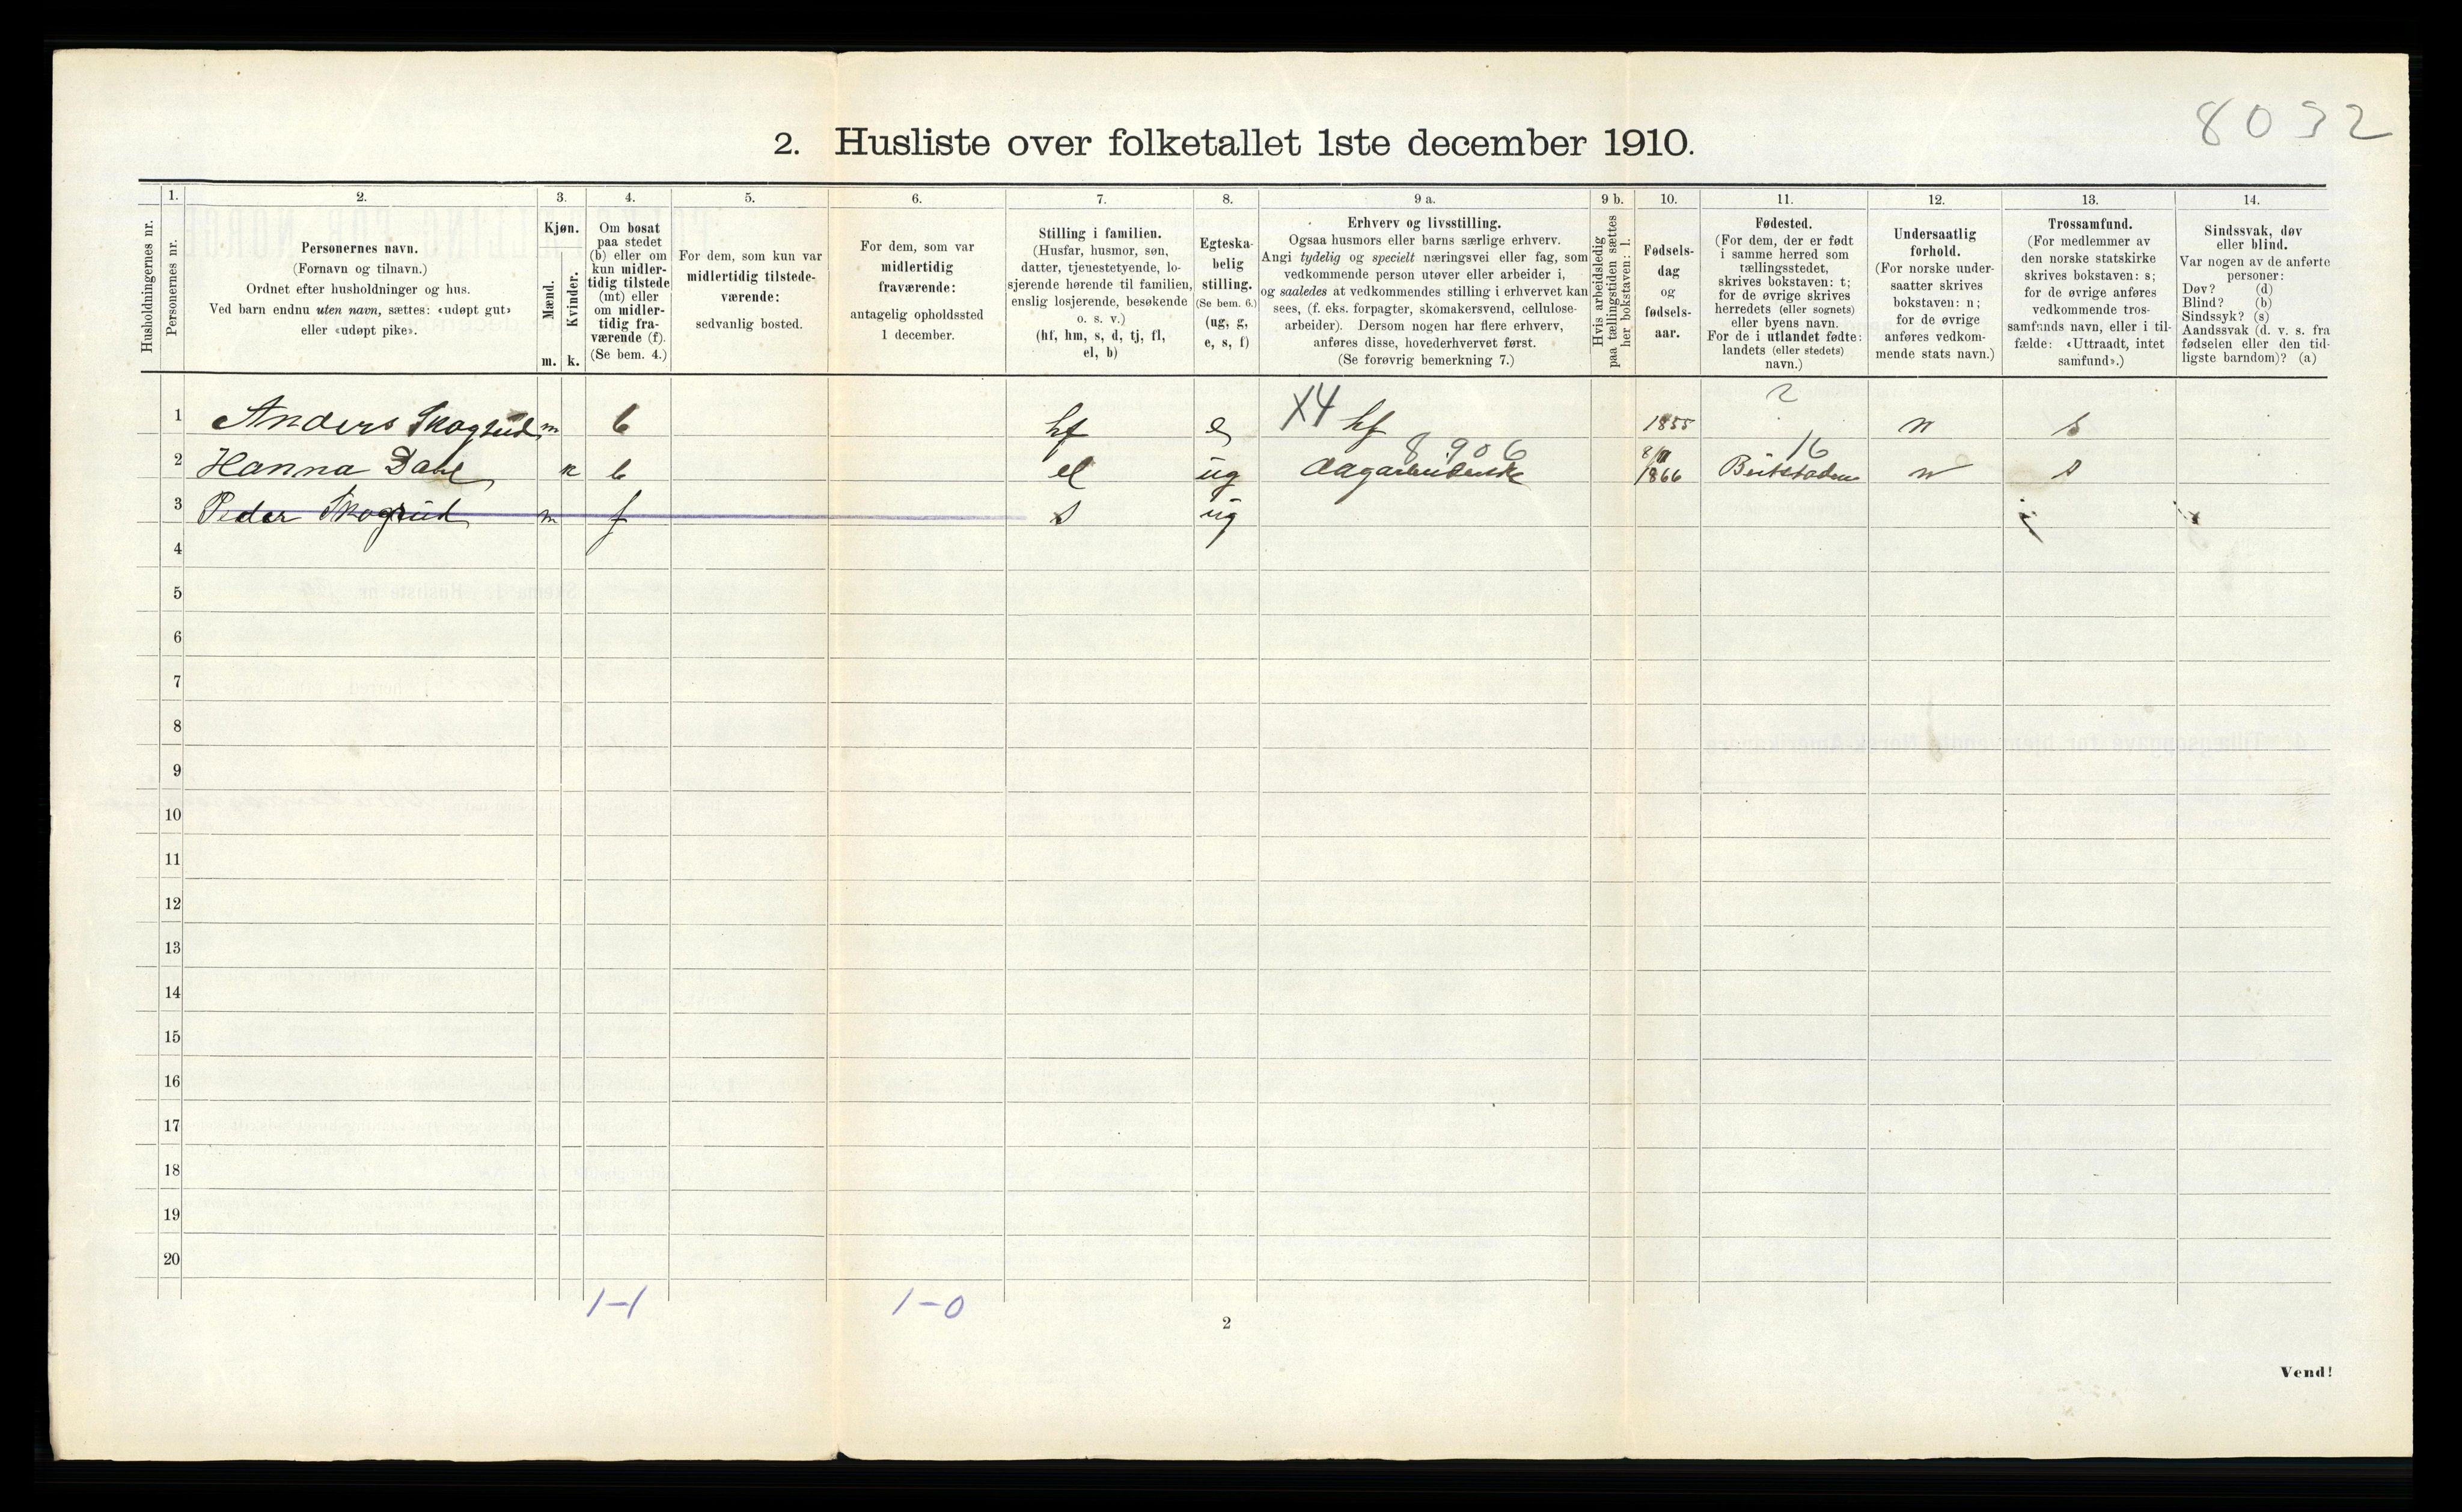 8032
2. Husliste over folketallet 1ste december 1910.
Husholdningernes nr.
1. Personernes nr.
2. Personernes navn.
(Fornavn og tilnavn.)
Ordnet efter husholdninger og hus.
Ved barn endnu uten navn, sættes: «udøpt gut»
eller «udøpt pike».
3. Kjøn.
Mænd. Kvinder.
m. k.
4. Om bosat
paa stedet
(b) eller om
kun midler-
tidig tilstede
(mt) eller
om midler-
tidig fra-
værende (f).
(Se bem. 4.)
5. For dem, som kun var
midlertidig tilstede-
værende:
sedvanlig bosted.
6. For dem, som var
midlertidig
fraværende:
antagelig opholdssted
1 december.
7. Stilling i familien.
(Husfar, husmor, søn,
datter, tjenestetyende, lo-
sjerende hørende til familien,
enslig losjerende, besøkende
o. s. v.)
(hf, hm, s, d, tj, fl,
el, b)
8. Egteska-
belig
stilling.
(Se bem. 6.)
(ug, g,
e, s, f)
9 a. Erhverv og livsstilling.
Ogsaa husmors eller barns særlige erhverv.
Angi tydelig og specielt næringsvei eller fag, som
vedkommende person utøver eller arbeider i,
og saaledes at vedkommendes stilling i erhvervet kan
sees, (f. eks. forpagter, skomakersvend, cellulose-
arbeider). Dersom nogen har flere erhverv,
anføres disse, hovederhvervet først.
(Se forøvrig bemerkning 7.)
9 b. Hvis arbeidsledig
paa tællingstiden sættes
her bokstaven: l.
10. Fødsels-
dag
og
fødsels-
aar.
11. Fødested.
(For dem, der er født
i samme herred som
tællingsstedet,
skrives bokstaven: t;
for de øvrige skrives
herredets (eller sognets)
eller byens navn.
For de i utlandet fødte:
landets (eller stedets)
navn.)
12. Undersaatlig
forhold.
(For norske under-
saatter skrives
bokstaven: n;
for de øvrige
anføres vedkom-
mende stats navn.)
13. Trossamfund.
(For medlemmer av
den norske statskirke
skrives bokstaven: s;
for de øvrige anføres
vedkommende tros-
samfunds navn, eller i til-
fælde: «Uttraadt, intet
samfund».)
14. Sindssvak, døv
eller blind.
Var nogen av de anførte
personer:
Døv? (d)
Blind? (b)
Sindssyk? (s)
Aandssvak (d. v. s. fra
fødselen eller den tid-
ligste barndom)? (a)
X4 2
1 Anders Skogrud m b hf e hf 1855 n s
8906 8/11 16
2 Hanna Dahl k b el ug 1866 Beitstaden n s
3 Peder Skogrud m f s ug
4
5
6
7
8
9
10
11
12
13
14
15
16
17
18
19
20
1-1 1-0
2
Vend!